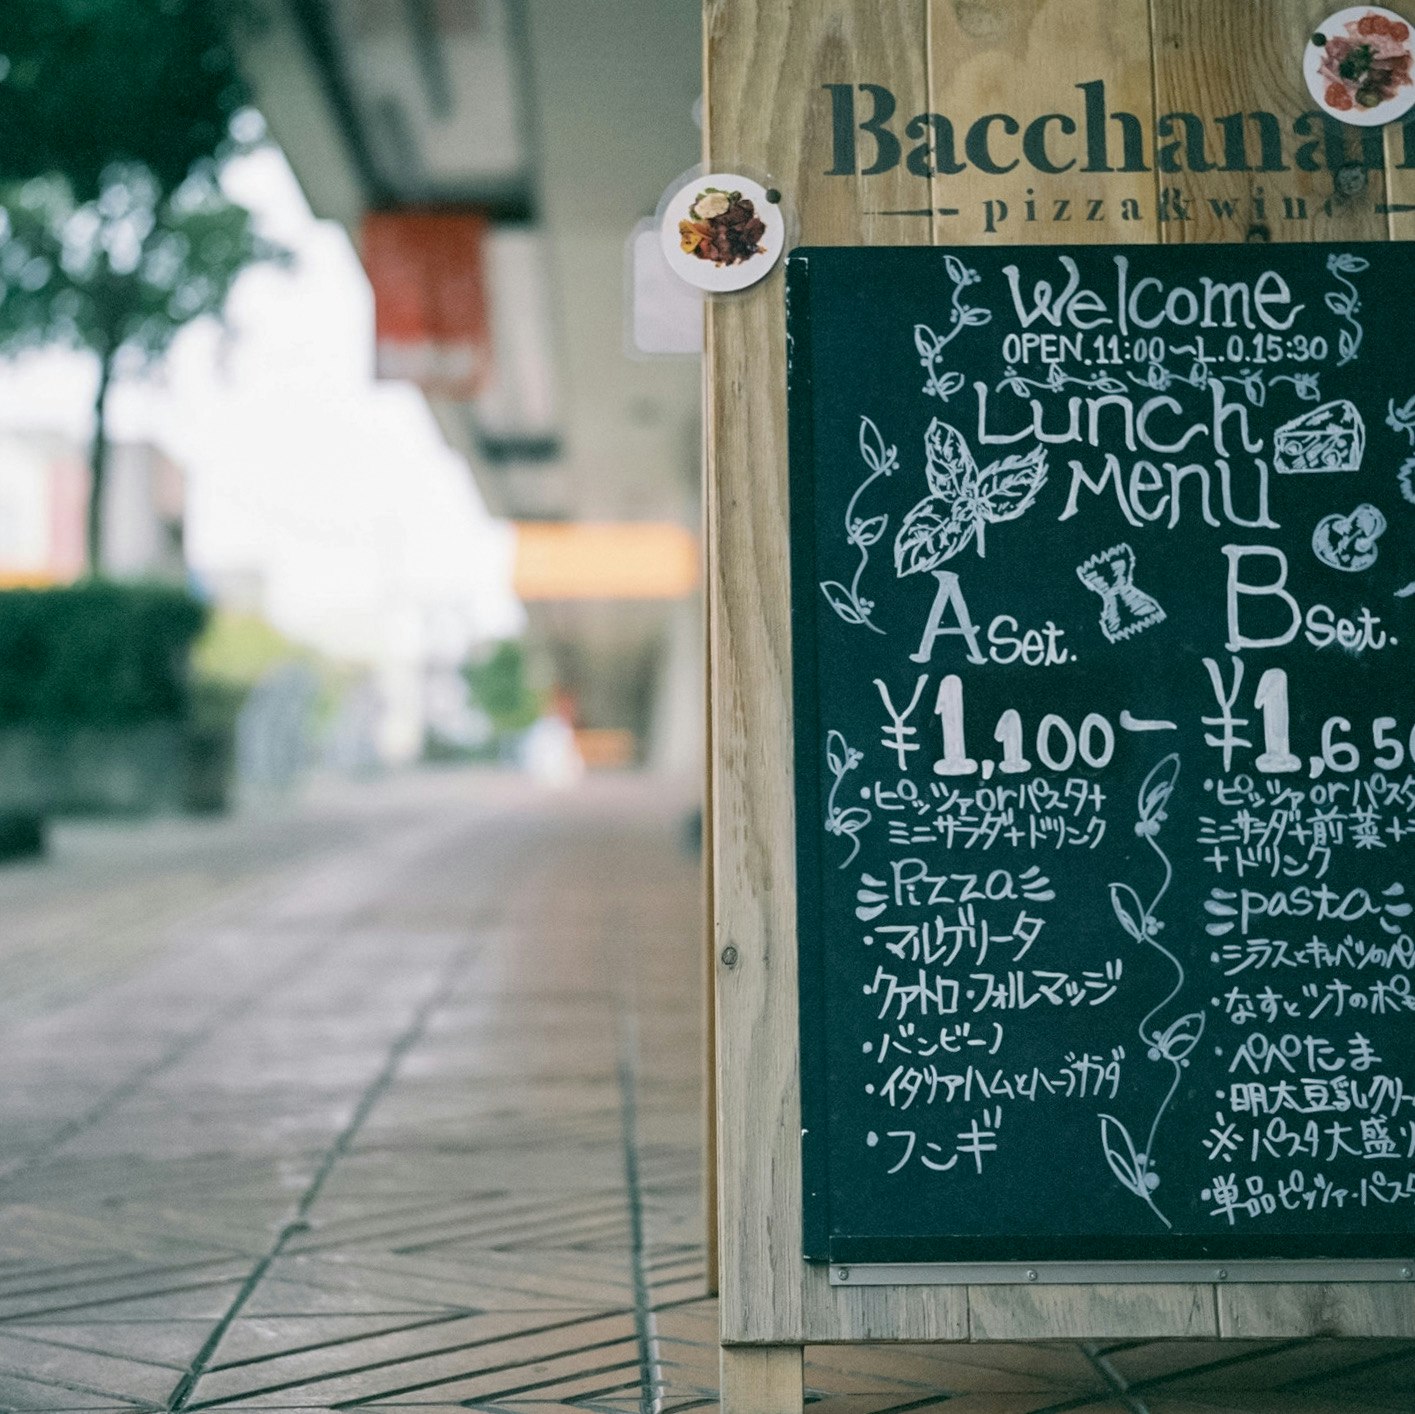 Bacchana
pizza & wine
Welcome
OPEN.11:00〜L.O.15:30
Lunch
Menu
A Set.
¥1,100-
・ピッツァorパスタ+
ミニサラダ+ドリンク
Pizza
・マルゲリータ
・クァトロ・フォルマッジ
・バンビーノ
・イタリアハムとハーブサラダ
・フンギ
B Set.
¥1,650
・ピッツァorパスタ
ミニサラダ+前菜+
+ドリンク
pasta
・シラスとキャベツのペ
・なすとツナのポ
・ペペたま
・明太豆乳クリー
※パスタ大盛り
・単品ピッツァ・パスタ